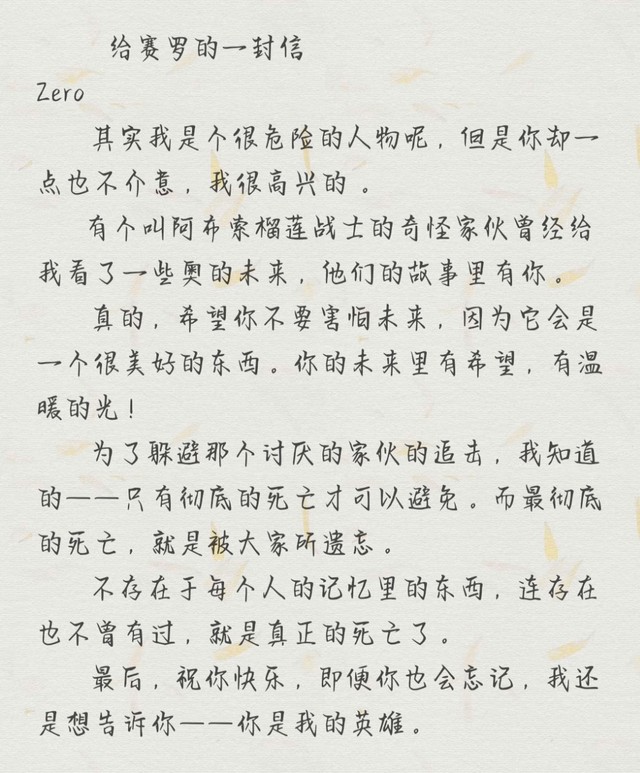 给赛罗的一封信
Zero
其实我是个很危险的人物呢，但是你却一
点也不介意，我很高兴的 。
有个叫阿布索榴莲战士的奇怪家伙曾经给
我看了一些奥的未来，他们的故事里有你。
真的，希望你不要害怕未来，因为它会是
一个很美好的东西。你的未来里有希望，有温
暖的光！
为了躲避那个讨厌的家伙的追击，我知道
的——只有彻底的死亡才可以避免。而最彻底
的死亡，就是被大家所遗忘。
不存在于每个人的记忆里的东西，连存在
也不曾有过，就是真正的死亡了。
最后，祝你快乐，即便你也会忘记，我还
是想告诉你——你是我的英雄。